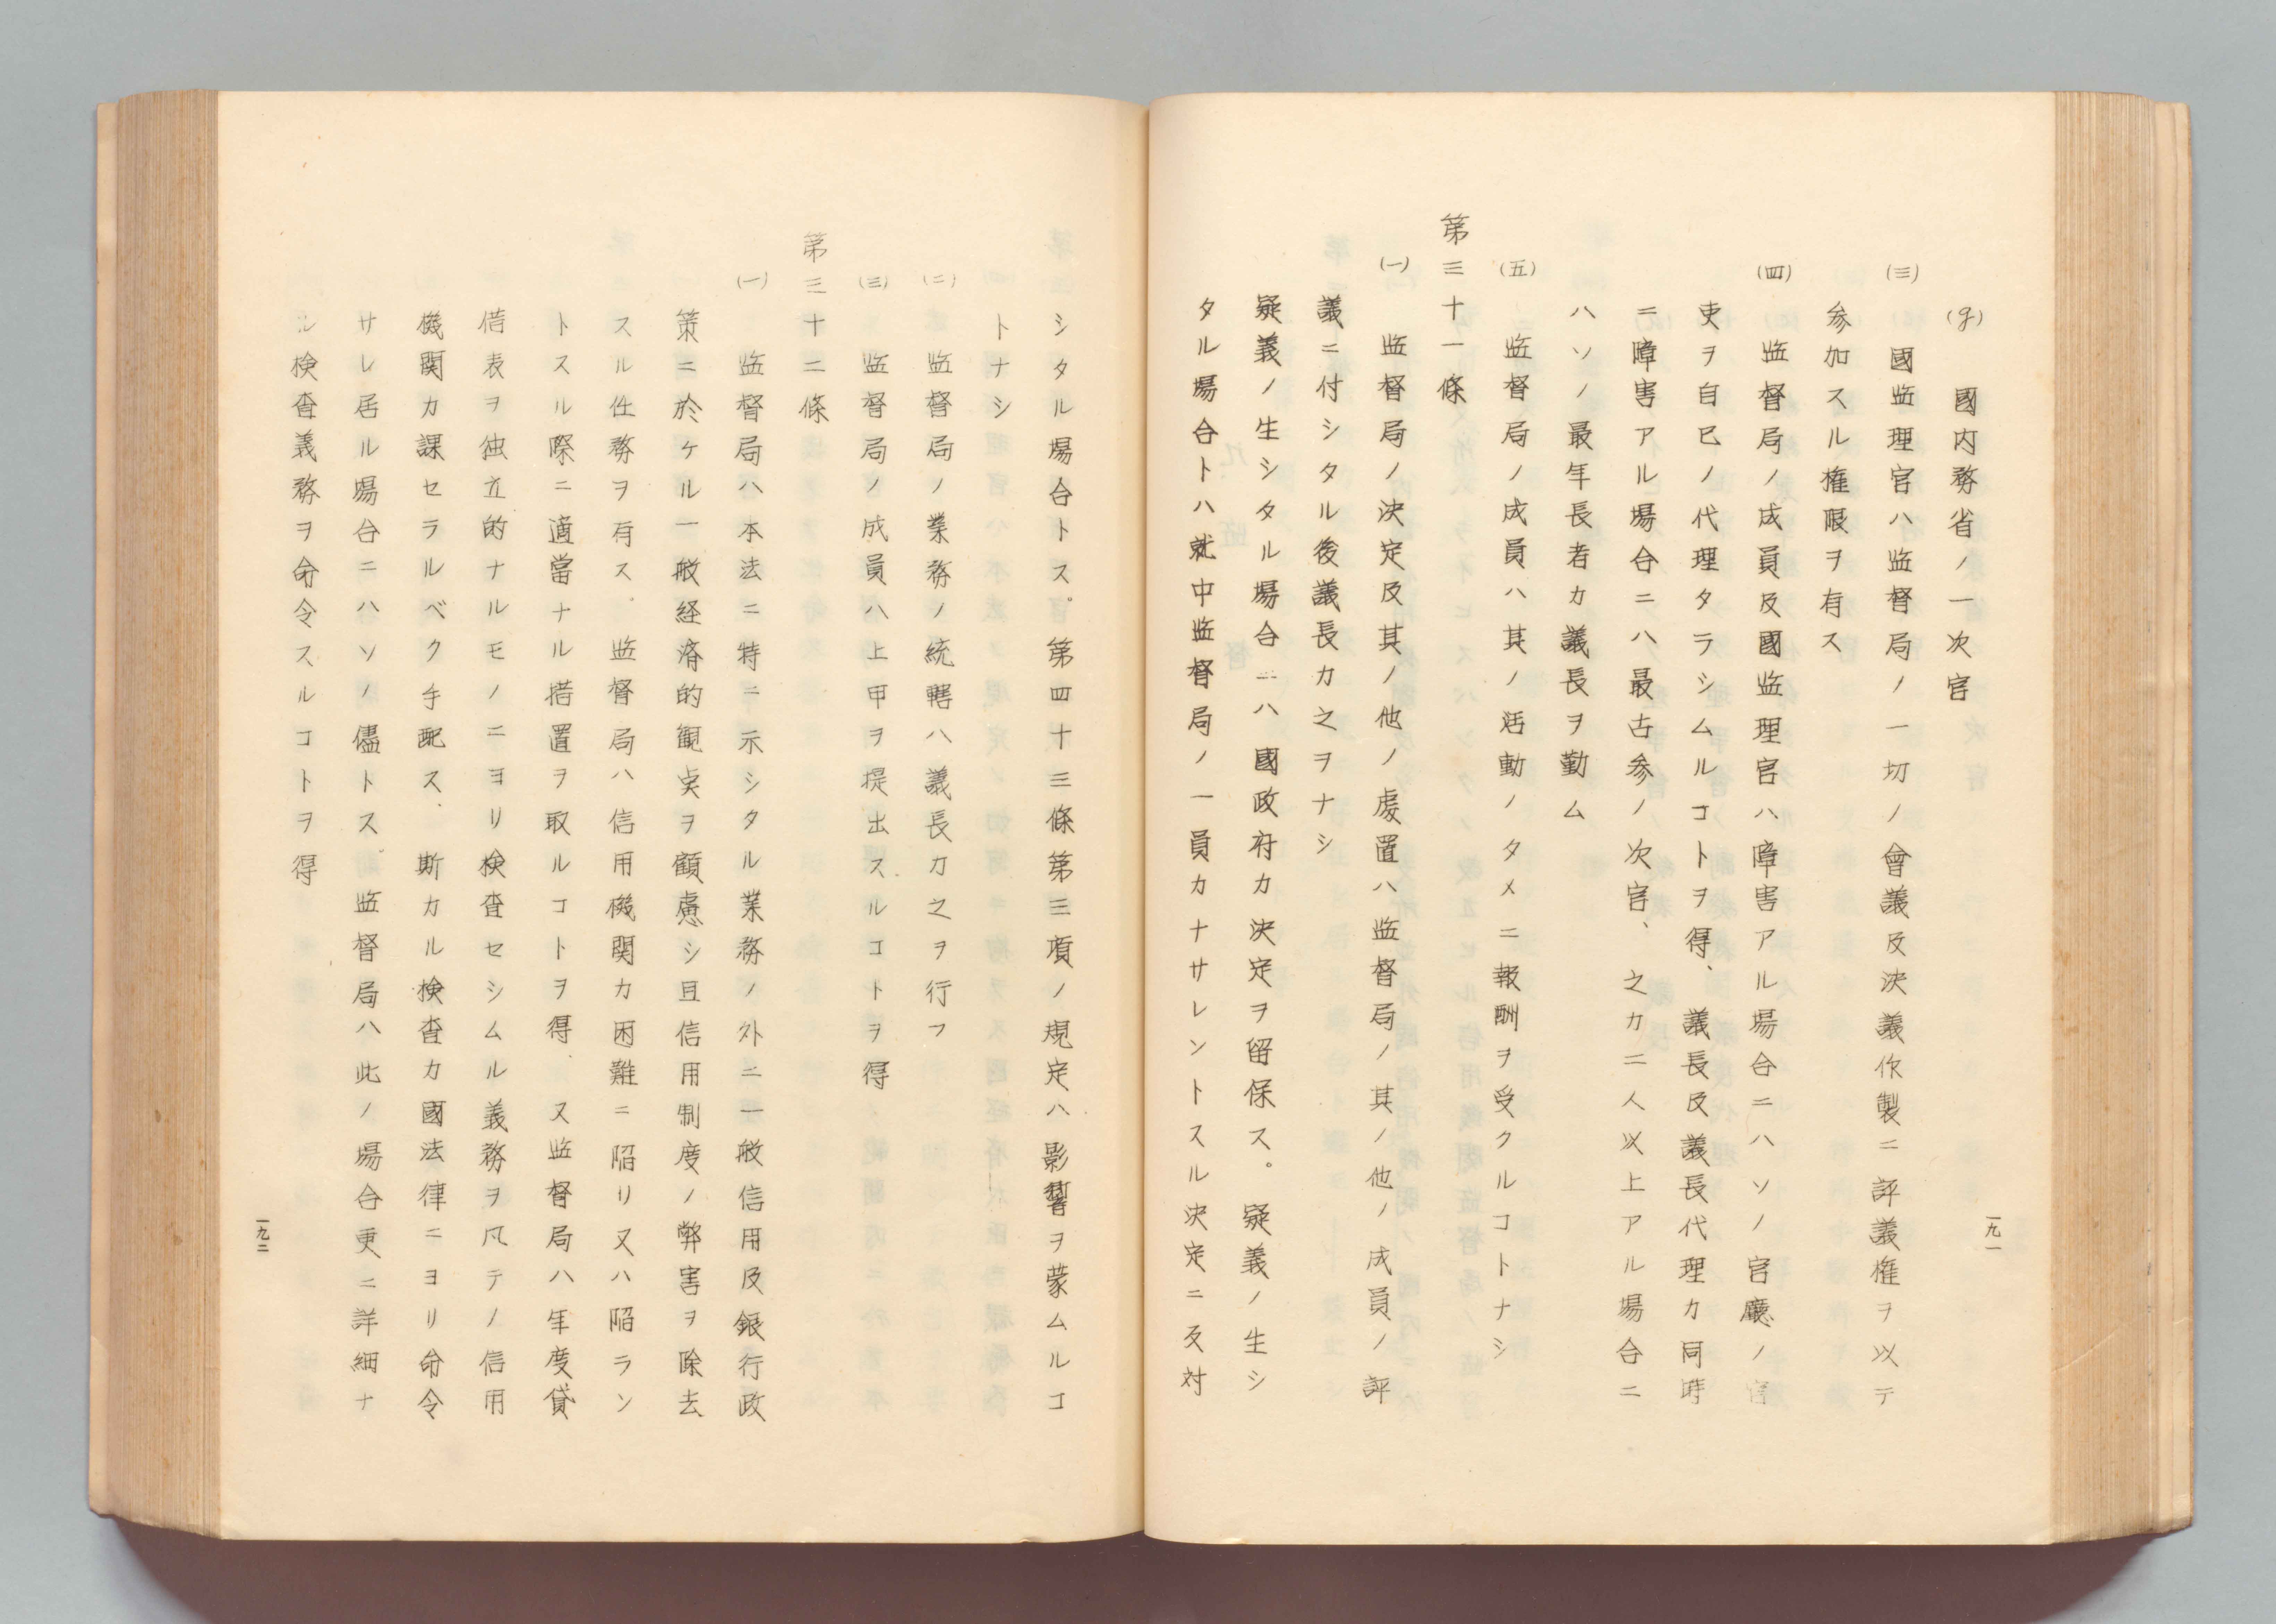 (g) 國内務省ノ一次官
(三) 國監理官ハ監督局ノ一切ノ會議及決議作製ニ評議権ヲ以テ
参加スル権限ヲ有ス
(四) 監督局ノ成員及國監理官ハ障害アル場合ニハソノ官廳ノ官
吏ヲ自己ノ代理タラシムルコトヲ得、議長及議長代理カ同時
ニ障害アル場合ニハ最古参ノ次官、之カ二人以上アル場合ニ
ハソノ最年長者カ議長ヲ勤ム
(五) 監督局ノ成員ハ其ノ活動ノタメニ報酬ヲ受クルコトナシ
第三十一條
(一) 監督局ノ決定及其ノ他ノ處置ハ監督局ノ其ノ他ノ成員ノ評
議ニ付シタル後議長カ之ヲナシ
疑義ノ生シタル場合ニハ國政府カ決定ヲ留保ス。疑義ノ生シ
タル場合トハ就中監督局ノ一員カナサレントスル決定ニ反対
一九一
シタル場合トス。第四十三條第三項ノ規定ハ影響ヲ蒙ムルコ
トナシ
(二) 監督局ノ業務ノ統轄ハ議長カ之ヲ行フ
(三) 監督局ノ成員ハ上申ヲ提出スルコトヲ得
第三十二條
(一) 監督局ハ本法ニ特ニ示シタル業務ノ外ニ一般信用及銀行政
策ニ於ケル一般経済的観点ヲ顧慮シ且信用制度ノ弊害ヲ除去
スル任務ヲ有ス。監督局ハ信用機関カ困難ニ陥リ又ハ陥ラン
トスル際ニ適當ナル措置ヲ取ルコトヲ得、又監督局ハ年度貸
借表ヲ独立的ナルモノニヨリ検査セシムル義務ヲ凡テノ信用
機関カ課セラルベク手配ス、斯カル検査カ國法律ニヨリ命令
サレ居ル場合ニハソノ儘トス。監督局ハ此ノ場合更ニ詳細ナ
ル検査義務ヲ命令スルコトヲ得
一九二